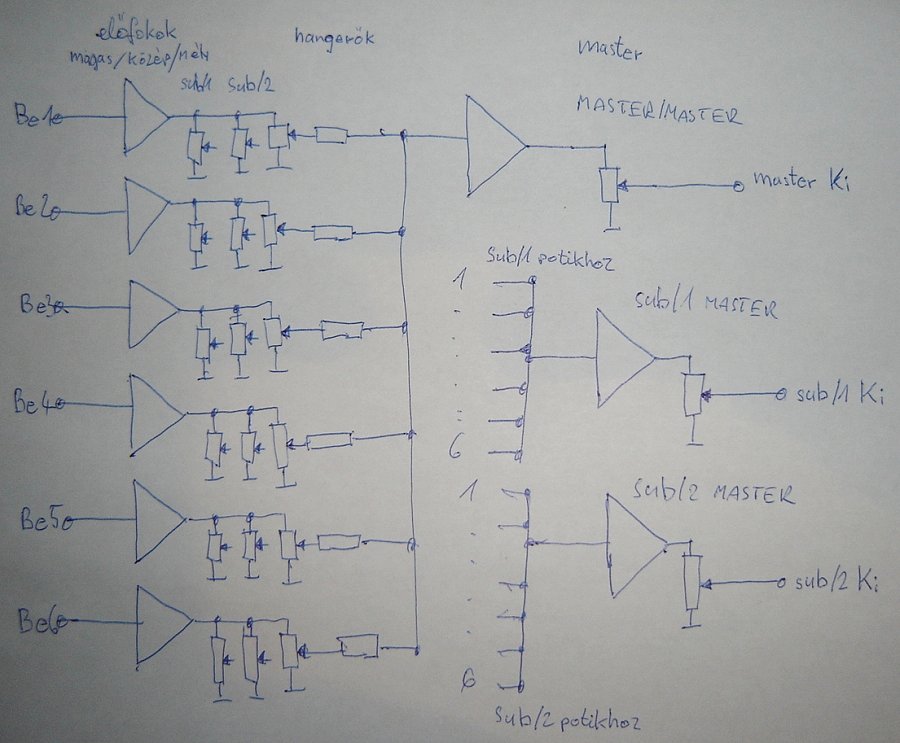 előfokok
hangerők
master
magas/közép/mély
sub/1 sub/2
MASTER/MASTER
Be1
master Ki
Be2
Sub/1 potikhoz
1
Be3
sub/1 MASTER
Be4
sub/1 Ki
6
1
sub/2 MASTER
Be5
sub/2 Ki
Be6
6
Sub/2 potikhoz